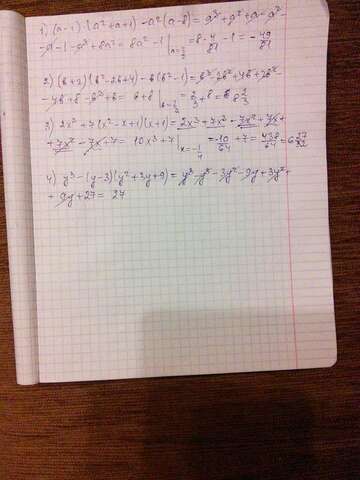 1) (a-1)·(a²+a+1)-a²(a-8) = a³+a²+a-a²-
-a-1-a³+8a² = 8a²-1 | a=2/9 = 8·4/81-1 = -49/81
2) (b+2)(b²-2b+4)-b(b²-1) = b³-2b²+4b+2b²-
-4b+8-b³+b = b+8 | b=2/3 = 2/3+8 = 8 2/3
3) 2x³+7(x²-x+1)(x+1) = 2x³+7x³-7x²+7x+
+7x²-7x+7 = 10x³+7 | x=-1/4 = -10/64+7 = 438/64 = 6 27/32
4) y³-(y-3)(y²+3y+9) = y³-y³-3y²-9y+3y²+
+9y+27 = 27